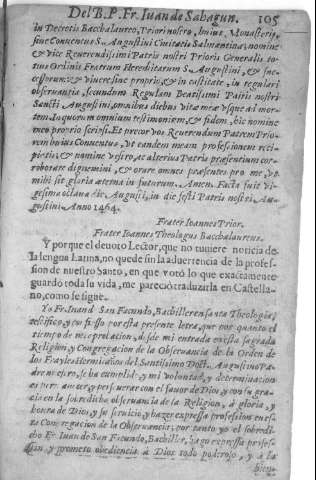 Del B. P. Fr. Iuan de Sahagun. 105
in Decretis Bacchalaureo, Priori nostro, huius, Monasterij,
siue Conuentus S. Augustini Ciuitatis Salmantinæ, nomine
& vice Reuerendissimi Patris nostri Prioris Generalis to-
tius Ordinis Fratrum Heremitarum S. Augustini, & suc-
cessorum: & viuere sine proprio, & in castitate, in regulari
obseruantia, secundum Regulam Beatissimi Patris nostri
Sancti Augustini, omnibus diebus vitæ meæ vsque ad mor-
tem. In quorum omnium testimonium, & fidem, hic nomine
meo proprio scripsi. Et precor vos Reuerendum Patrem Prio-
rem huius Conuentus, vt eandem meam professionem reci-
piatis; & nomine vestro, ac alterius Patris præsentium cor-
roborare dignemini, & orare omnes præsentes pro me, vt
mihi sit gloria æterna in futurum. Amen. Facta fuit vi-
gesima octaua die Augusti, in die festi Patris nostri Au-
gustini. Anno 1464.
Frater Ioannes Prior.
Frater Ioannes Theologus Bacchalaureus.
Y porque el deuoto Lector, que no tuuiere noticia de
la lengua Latina, no quede sin la aduertencia de la profes-
sion de nuestro Santo, en que votò lo que exactamente
guardò toda su vida, me pareciò traduzirla en Castella-
no, como se sigue.
Yo Fr. Iuan de San Facundo, Bachiller en santa Theologia,
certifico, y confiesso por esta presente letra, que por quanto el
tiempo de mi probacion, desde mi entrada en esta sagrada
Religion, y Congregacion de la Obseruancia de la Orden de
los Frayles Hermitaños del Santissimo Doct. Augustino Pa-
dre nuestro, se ha cumplido, y mi voluntad, y determinacion
es permanecer, y perseuerar con el fauor de Dios, y con su gra-
cia en la sobredicha obseruancia de la Religion, à gloria, y
honra de Dios, y su seruicio, y hazer expressa profession en es-
ta Congregacion de la Obseruancia; por tanto yo el sobredi-
cho Fr. Iuan de San Facundo, Bachiller, hago expressa profes-
sion, y prometo obediencia à Dios todo poderoso, y à la
bien-